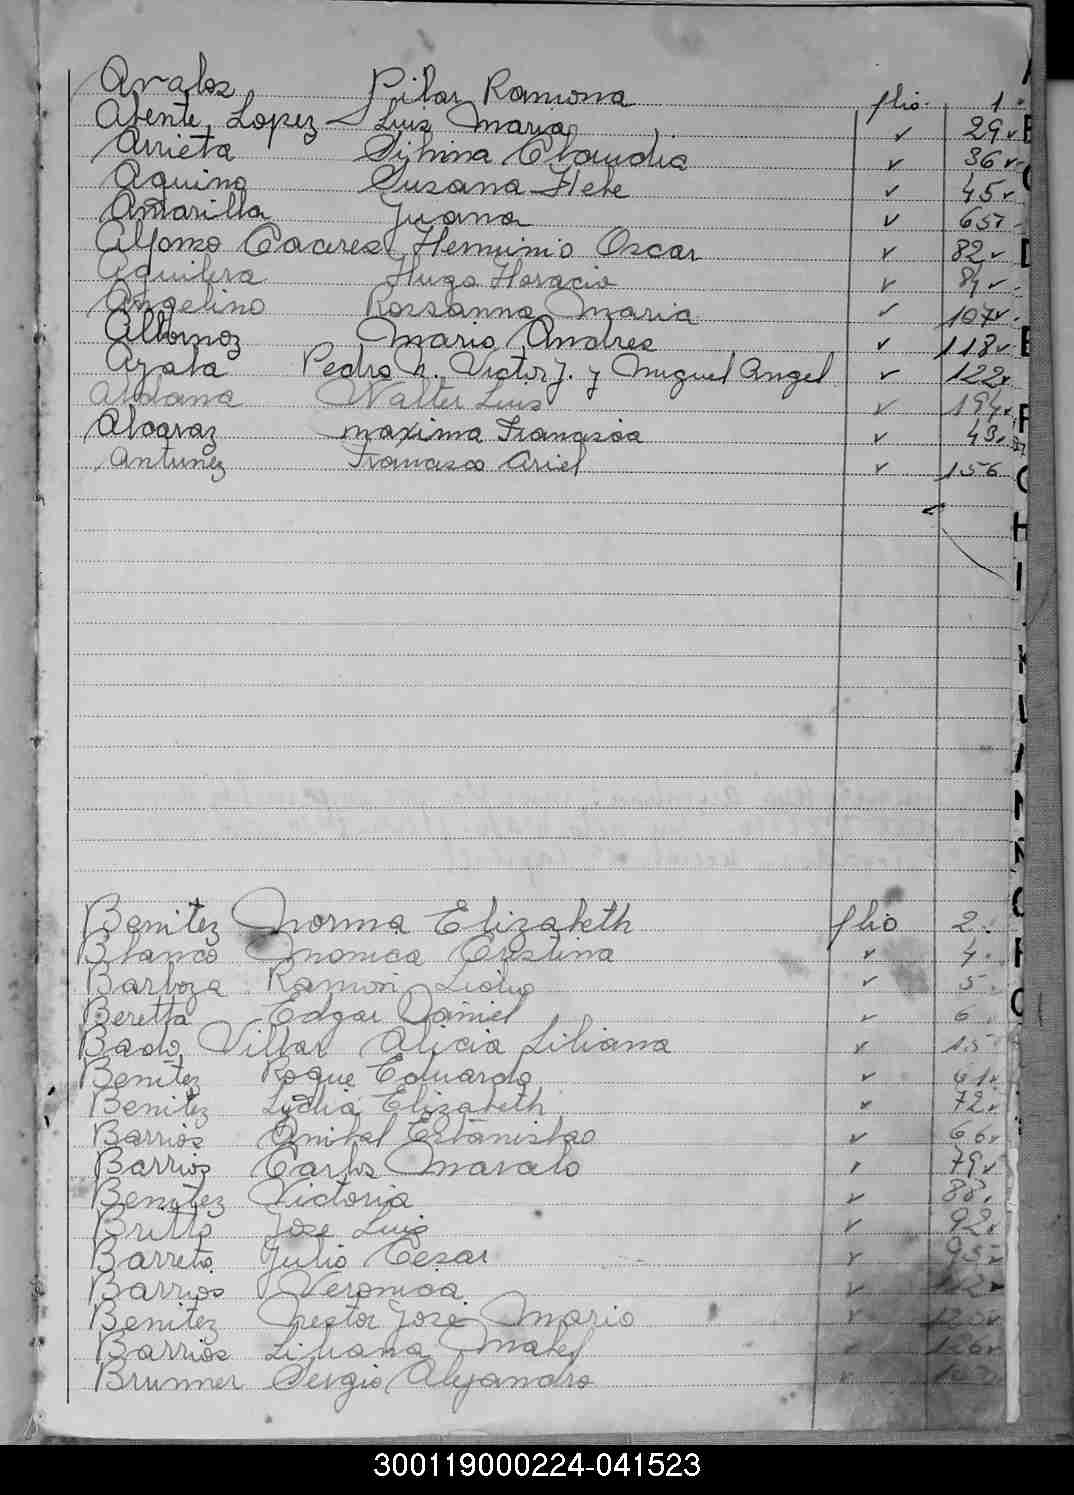 Avalos Pilar Ramona flio. 1
Abente Lopez Luis Maria ✓ 29 ✓
Arrieta Silvina Claudia ✓ 36 ✓
Aquino Susana Hebe ✓ 45 ✓
Amarilla Juana ✓ 65
Alfonzo Caceres Herminio Oscar ✓ 82 ✓
Aquilera Hugo Horacio ✓ 84 ✓
Angelino Rossanna Maria ✓ 107 ✓
Albornoz Mario Andres ✓ 118 ✓
Azala Pedro N. Victor J. y Miguel Angel ✓ 122 ✓
Aldana Walter Luis ✓ 194 ✓
Alcaraz maxima Francisca ✓ 43 ✓
Antunez Francisco Ariel ✓ 156
Benitez Norma Elizabeth flio 2.
Blanco Monica Cristina ✓ 4.
Barboza Ramon ✓ 5
Beretta Edgar Daniel ✓ 6
Villar Alicia Liliana ✓ 15
Benitez Roque Eduardo ✓ 61 ✓
Benitez Lydia Elizabeth ✓ 72 ✓
Barrios Anibal Estanislao ✓ 66 ✓
Barrios Carlos Marcelo ✓ 79 ✓
Benitez Victoria ✓ 88
Britto Jose Luis ✓ 92 ✓
Barreto Julio Cesar ✓ 95 ✓
Barrios Veronica ✓ 112
Benitez Nestor José Mario ✓
Barrios Liliana Mabel ✓
Brunner Sergio Alejandro ✓
300119000224-041523